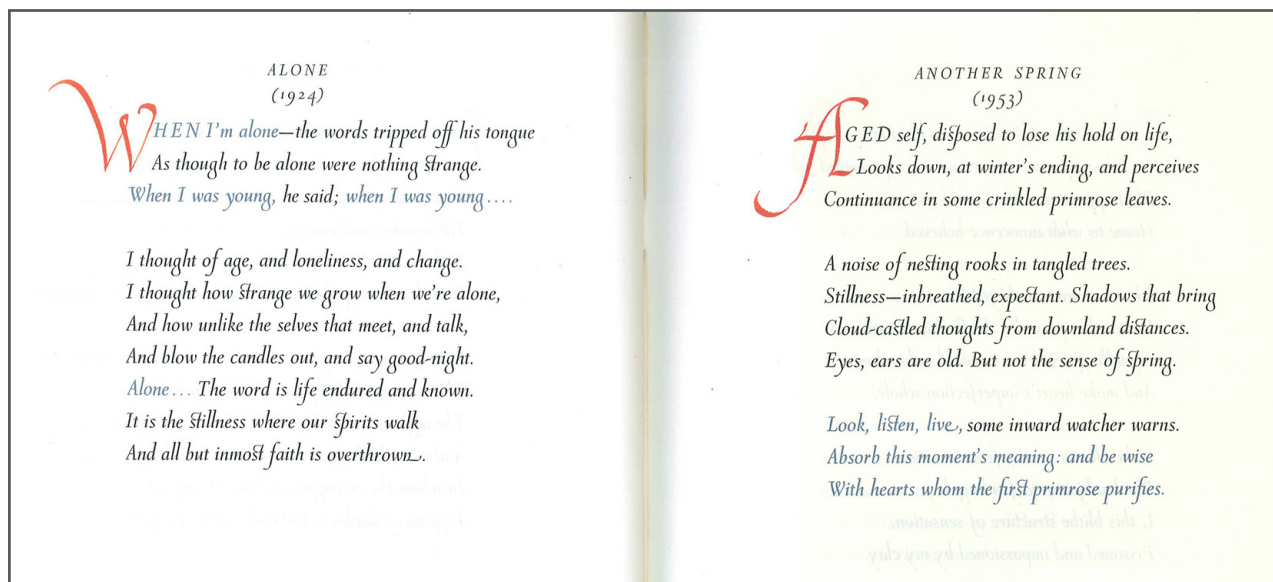 ALONE
(1924)
WHEN I'm alone—the words tripped off his tongue
As though to be alone were nothing strange.
When I was young, he said; when I was young....

I thought of age, and loneliness, and change.
I thought how strange we grow when we're alone,
And how unlike the selves that meet, and talk,
And blow the candles out, and say good-night.
Alone... The word is life endured and known.
It is the stillness where our spirits walk
And all but inmost faith is overthrown.

ANOTHER SPRING
(1953)
AGED self, disposed to lose his hold on life,
Looks down, at winter's ending, and perceives
Continuance in some crinkled primrose leaves.

A noise of nesting rooks in tangled trees.
Stillness—inbreathed, expectant. Shadows that bring
Cloud-castled thoughts from downland distances.
Eyes, ears are old. But not the sense of spring.

Look, listen, live, some inward watcher warns.
Absorb this moment's meaning: and be wise
With hearts whom the first primrose purifies.